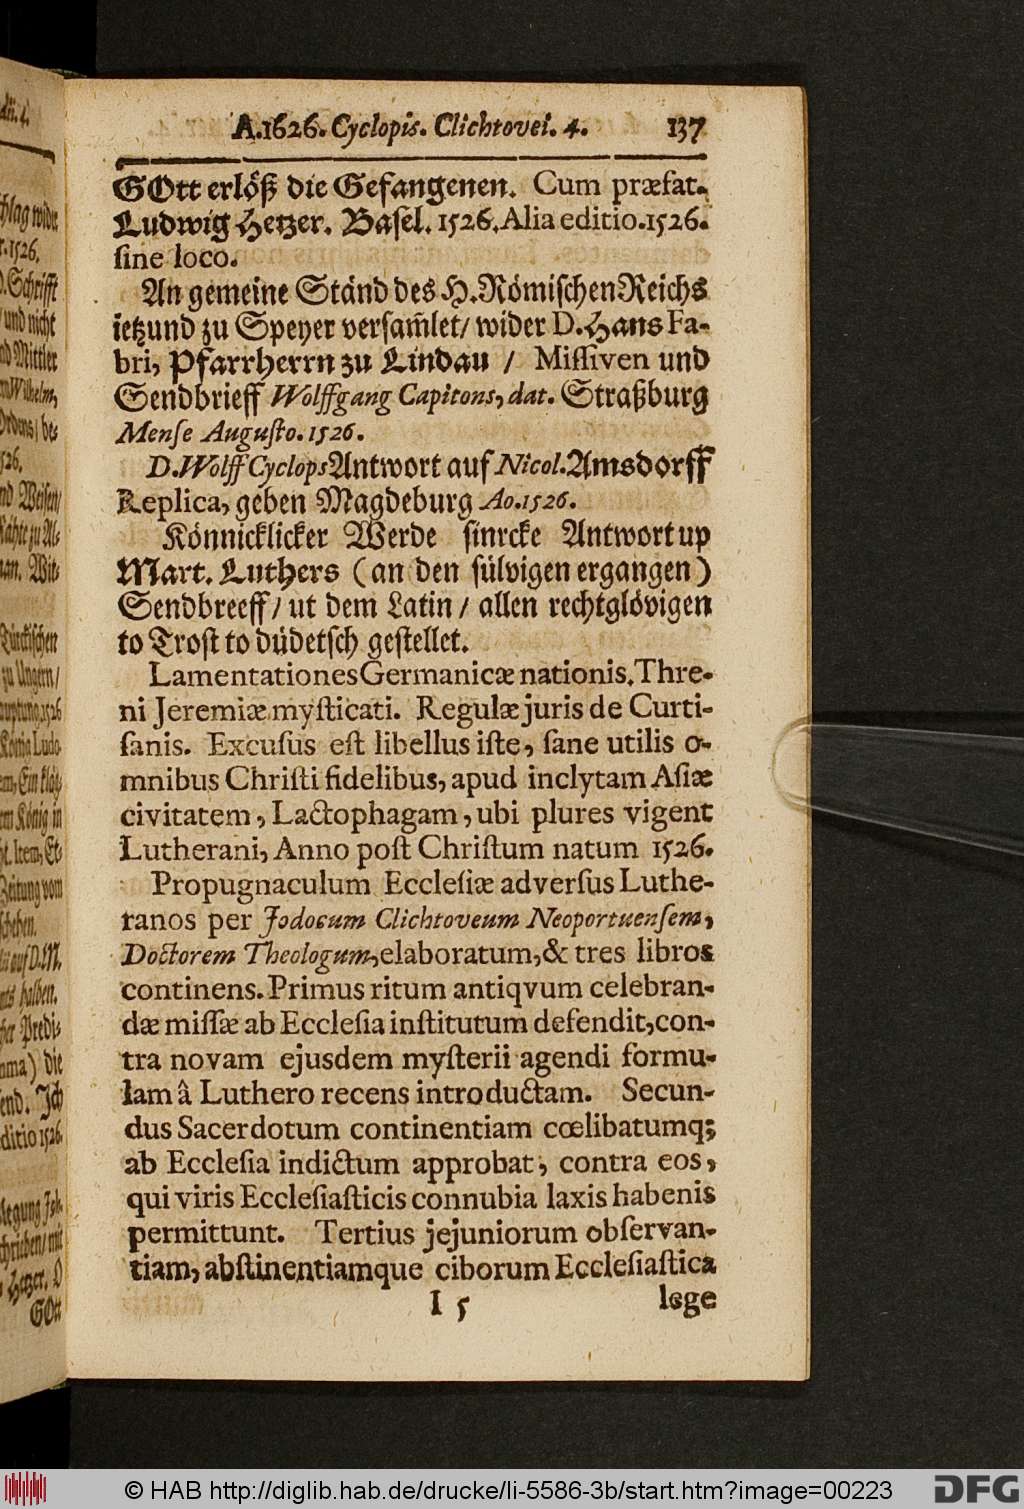 A.1626. Cyclopis. Clichtovei. 4. 137
GOtt erlöß die Gefangenen. Cum præfat.
Ludwig Hetzer. Basel. 1526. Alia editio. 1526.
sine loco.
An gemeine Ständ des H. Römischen Reichs
ietzund zu Speyer versam̃let / wider D. Hans Fa-
bri, Pfarrherrn zu Lindau / Missiven und
Sendbrieff Wolffgang Capitons, dat. Straßburg
Mense Augusto. 1526.
D. Wolff Cyclops Antwort auf Nicol. Amsdorff
Replica, geben Magdeburg Ao. 1526.
Könnicklicker Werde sinrcke Antwort up
Mart. Luthers (an den sülvigen ergangen)
Sendbreeff / ut dem Latin / allen rechtglövigen
to Trost to düdetsch gestellet.
Lamentationes Germanicæ nationis. Thre-
ni Jeremiæ mysticati. Regulæ juris de Curti-
sanis. Excusus est libellus iste, sane utilis o-
mnibus Christi fidelibus, apud inclytam Asiæ
civitatem, Lactophagam, ubi plures vigent
Lutherani, Anno post Christum natum 1526.
Propugnaculum Ecclesiæ adversus Luthe-
ranos per Jodocum Clichtoveum Neoportuensem,
Doctorem Theologum, elaboratum, & tres libros
continens. Primus ritum antiqvum celebran-
dæ missæ ab Ecclesia institutum defendit, con-
tra novam ejusdem mysterii agendi formu-
lam â Luthero recens introductam. Secun-
dus Sacerdotum continentiam cœlibatumq;
ab Ecclesia indictum approbat, contra eos,
qui viris Ecclesiasticis connubia laxis habenis
permittunt. Tertius jejuniorum observan-
tiam, abstinentiamque ciborum Ecclesiastica
I 5 lege
© HAB http://diglib.hab.de/drucke/li-5586-3b/start.htm?image=00223
DFG